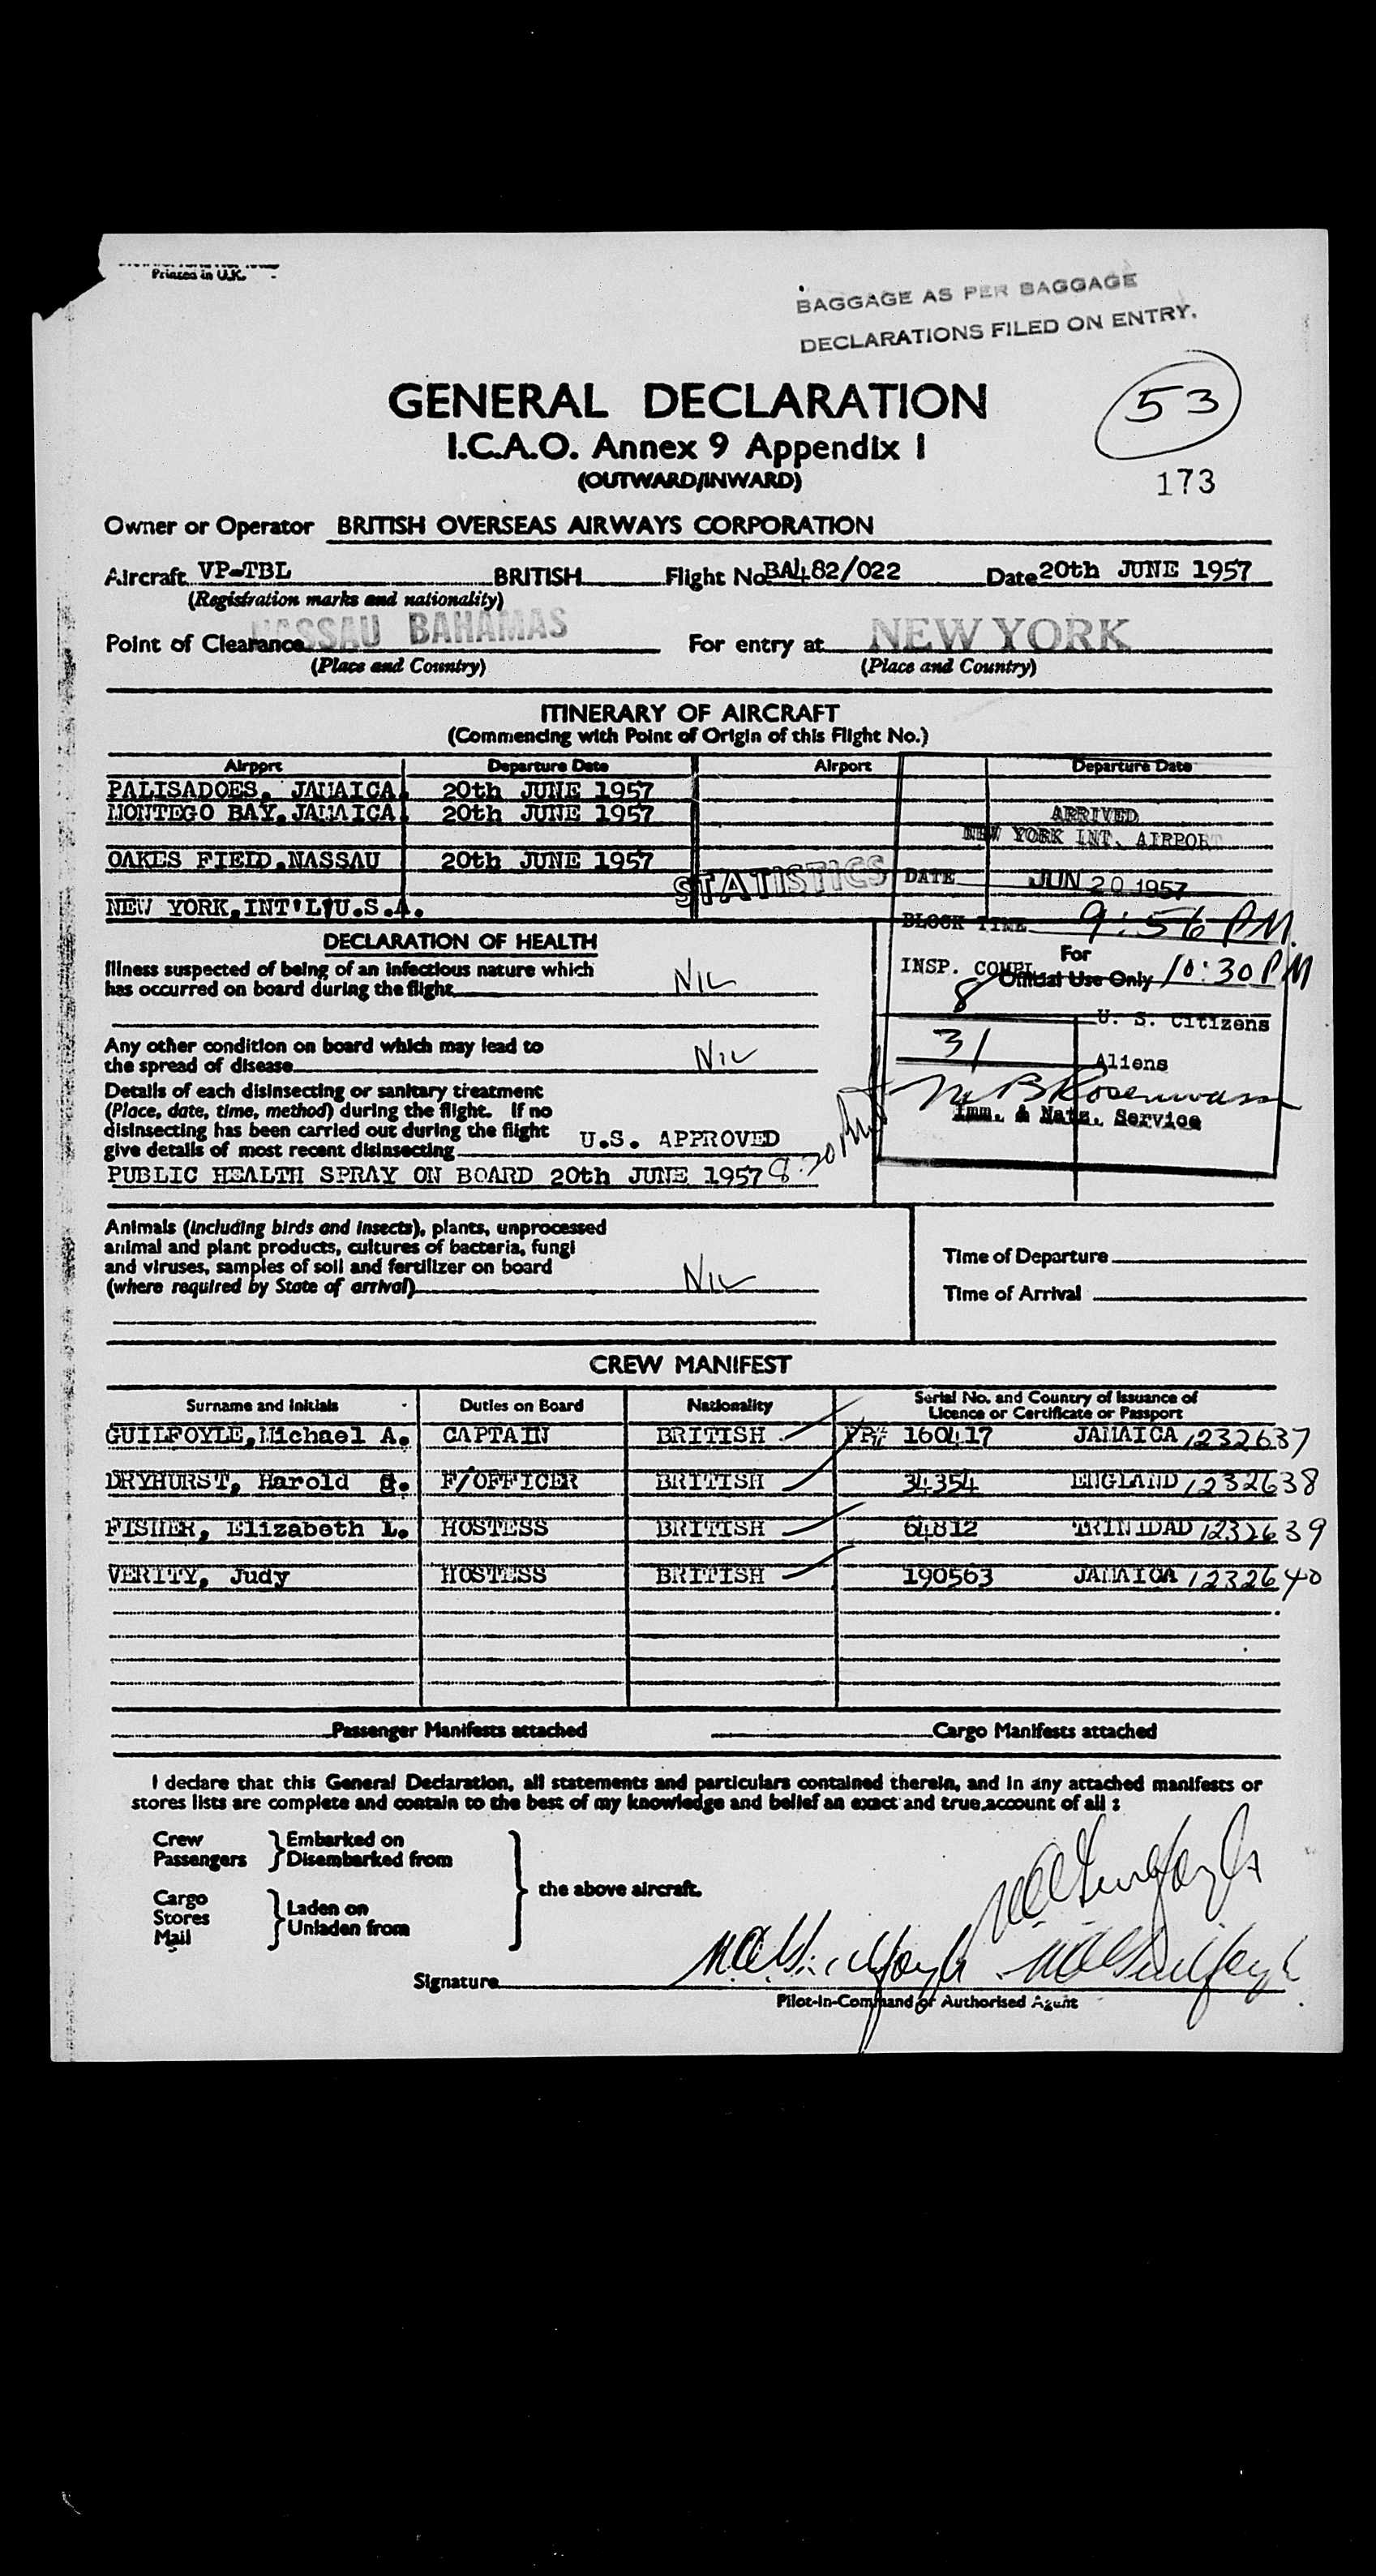 Printed in U.K.
BAGGAGE AS PER BAGGAGE
DECLARATIONS FILED ON ENTRY.
GENERAL DECLARATION
I.C.A.O. Annex 9 Appendix I
(OUTWARD/INWARD)
53
173
Owner or Operator BRITISH OVERSEAS AIRWAYS CORPORATION
Aircraft VP-TBL BRITISH Flight No. BA482/022 Date 20th JUNE 1957
(Registration marks and nationality)
Point of Clearance NASSAU BAHAMAS For entry at NEW YORK
(Place and Country) (Place and Country)
ITINERARY OF AIRCRAFT
(Commencing with Point of Origin of this Flight No.)
Airport Departure Date Airport Departure Date
PALISADOES, JAMAICA. 20th JUNE 1957
MONTEGO BAY, JAMAICA. 20th JUNE 1957
ARRIVED
NEW YORK INT. AIRPORT
OAKES FIELD, NASSAU 20th JUNE 1957
STATISTICS
DATE JUN 20 1957
NEW YORK, INT'L, U.S.A.
BLOCK TIME 9:56 PM.
DECLARATION OF HEALTH
For
Official Use Only
INSP. COMPL. 10:30 PM
Illness suspected of being of an infectious nature which
has occurred on board during the flight NIL
8 U. S. Citizens
31 Aliens
Imm. & Natz. Service
Any other condition on board which may lead to
the spread of disease NIL
Details of each disinsecting or sanitary treatment
(Place, date, time, method) during the flight. If no
disinsecting has been carried out during the flight
give details of most recent disinsecting U.S. APPROVED
PUBLIC HEALTH SPRAY ON BOARD 20th JUNE 1957 8:20
Animals (including birds and insects), plants, unprocessed
animal and plant products, cultures of bacteria, fungi
and viruses, samples of soil and fertilizer on board
(where required by State of arrival) NIL
Time of Departure
Time of Arrival
CREW MANIFEST
Surname and Initials Duties on Board Nationality Serial No. and Country of Issuance of
Licence or Certificate or Passport
GUILFOYLE, Michael A. CAPTAIN BRITISH PP# 160417 JAMAICA 1232637
DRYHURST, Harold F/OFFICER BRITISH 34354 ENGLAND 1232638
FISHER, Elizabeth L. HOSTESS BRITISH 64812 TRINIDAD 1232639
VERITY, Judy HOSTESS BRITISH 190563 JAMAICA 1232640
Passenger Manifests attached Cargo Manifests attached
I declare that this General Declaration, all statements and particulars contained therein, and in any attached manifests or
stores lists are complete and contain to the best of my knowledge and belief an exact and true account of all :
Crew
Passengers
Embarked on
Disembarked from
Cargo
Stores
Mail
Laden on
Unladen from
the above aircraft.
Signature M.A. Guilfoyle M A Guilfoyle
M A Guilfoyle
Pilot-in-Command or Authorised Agent